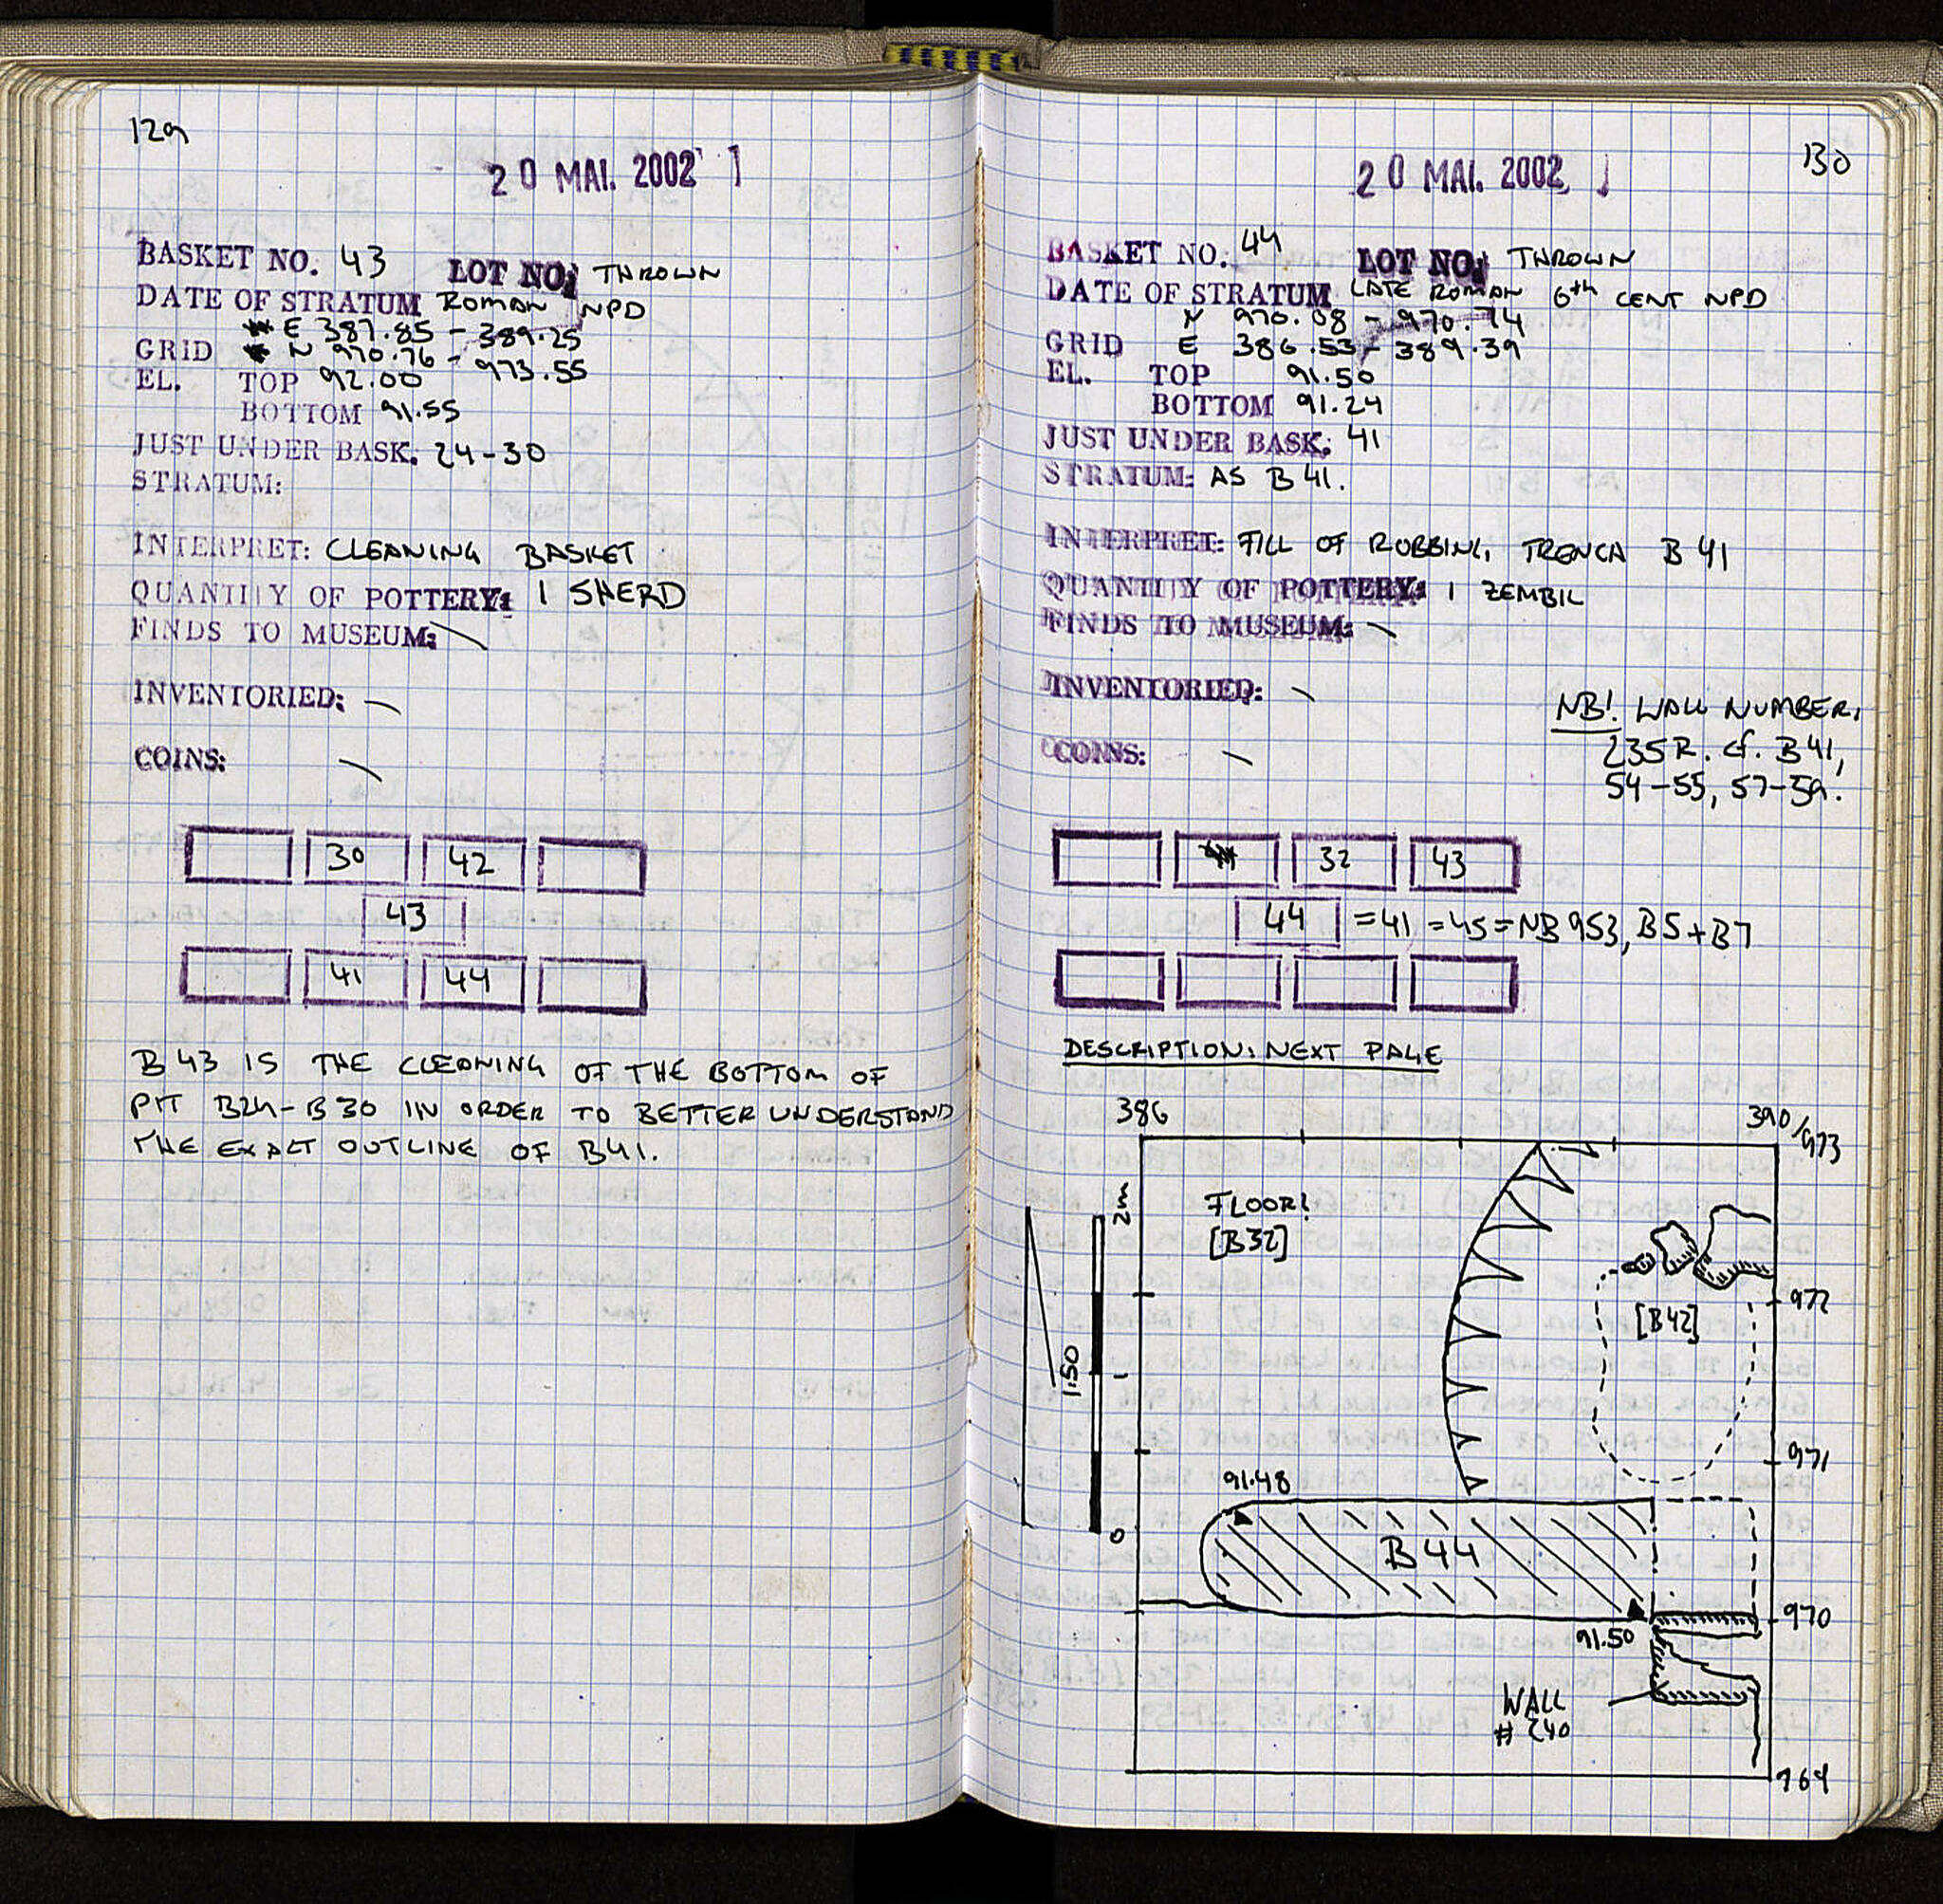 129
20 MAI. 2002
BASKET NO. 43 LOT NO: THROWN
DATE OF STRATUM ROMAN NPD
E 387.85 - 389.25
GRID N 970.76 - 973.55
EL. TOP 92.00
BOTTOM 91.55
JUST UNDER BASK. 24-30
STRATUM:
INTERPRET: CLEANING BASKET
QUANTITY OF POTTERY: 1 SHERD
FINDS TO MUSEUM: \
INVENTORIED: —
COINS: \
30 42
43
41 44
B 43 IS THE CLEANING OF THE BOTTOM OF
PIT B24-B30 IN ORDER TO BETTER UNDERSTAND
THE EXACT OUTLINE OF B41.
130
20 MAI. 2002
BASKET NO: 44 LOT NO: THROWN
DATE OF STRATUM LATE ROMAN 6th CENT NPD
N 970.08 - 970.74
GRID E 386.53 - 389.39
EL. TOP 91.50
BOTTOM 91.24
JUST UNDER BASK: 41
STRATUM: AS B 41.
INTERPRET: FILL OF ROBBING TRENCH B 41
QUANTITY OF POTTERY: 1 ZEMBIL
FINDS TO MUSEUM: \
INVENTORIED: \
COINS: \
NB! WALL NUMBER:
235R. cf. B41,
54-55, 57-59.
32 43
44 = 41 = 45 = NB 953, B5 + B7
DESCRIPTION: NEXT PAGE
386 390/973
FLOOR!
[B32]
2m
972
[B42]
1.50
1
971
91.48
0
B 44
970
91.50
WALL
# 240